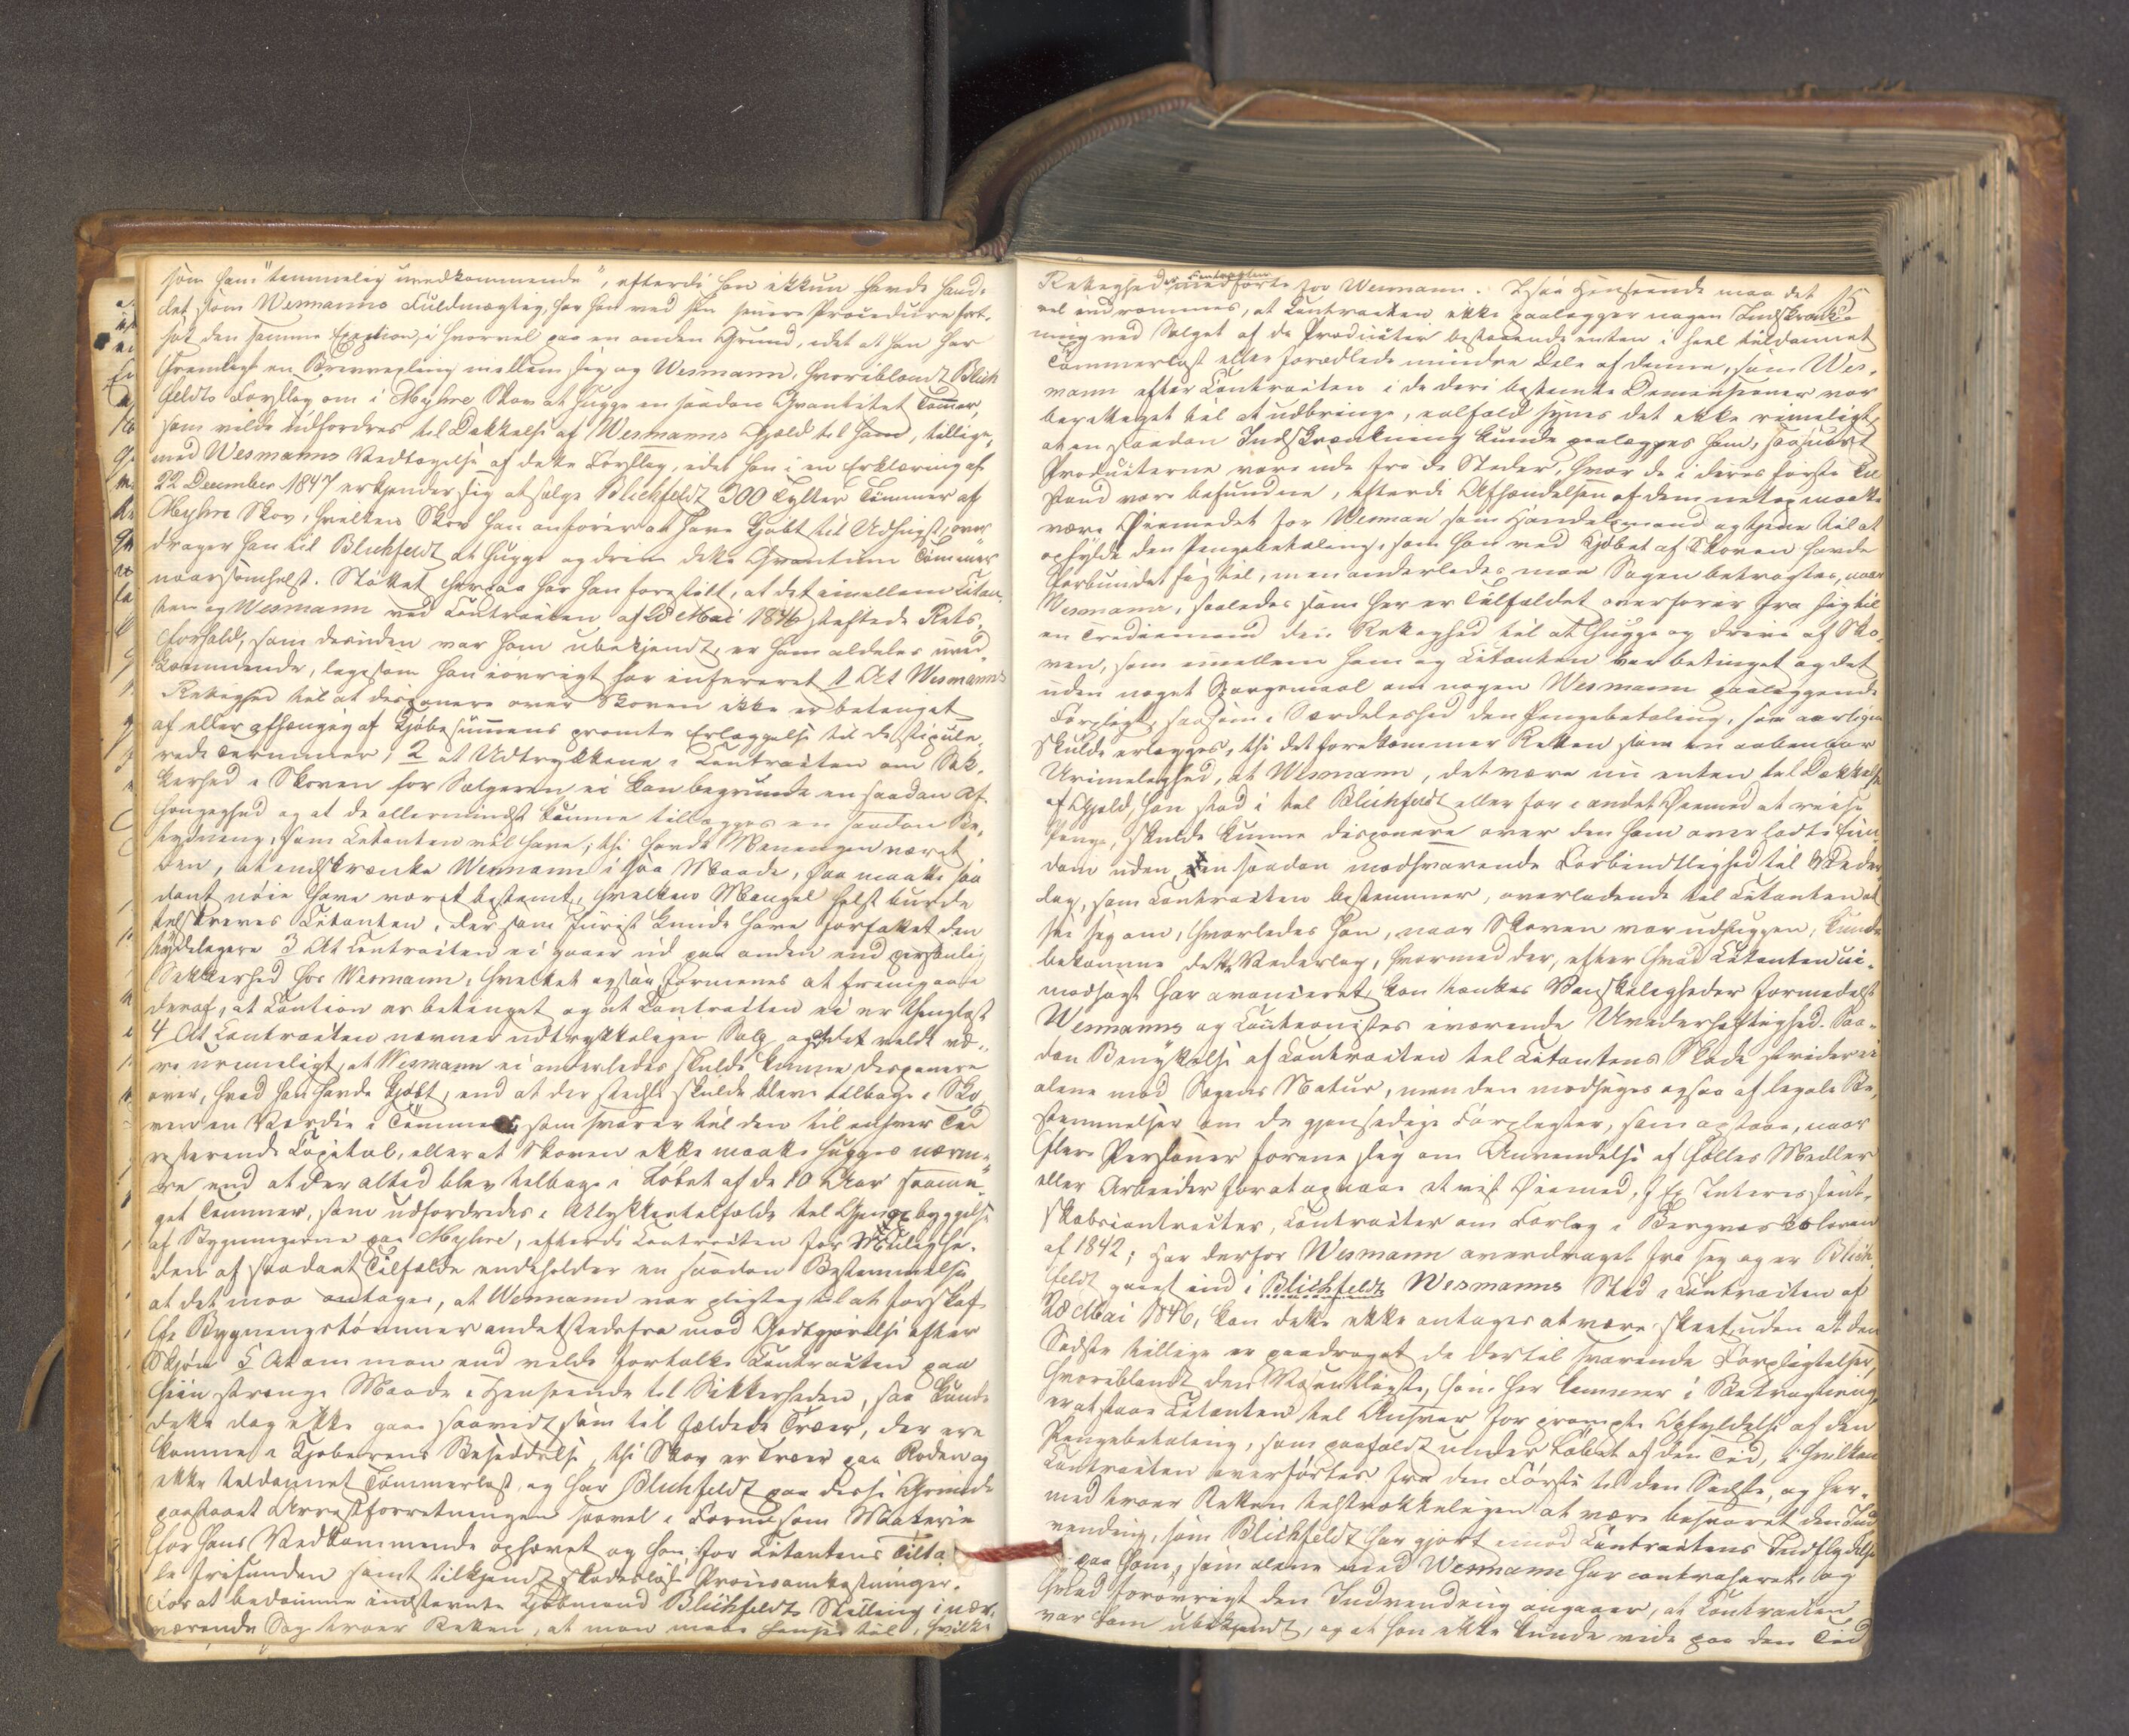 som ham "temmelig uvedkommende", efterdi han ikkun havde hand-
let som Wesmanns Fuldmægtig, har han ved sin senere Procedure fort-
sat den samme Exception, i hvorvel paa en anden Grund, idet at han har
fremlagt en Brevvexling mellem sig og Wesmann, hvoriblandt Blich
feldts Forslag om i Myhre Skov at hugge en saadan Qvantitet Tømmer,
som vilde udfordres til Dækkelse af Wesmanns Gjæld til ham, tillige-
med Wesmanns Vedtagelse af dette Forslag, idet han i en Erklæring af
22 December 1847 erkjender sig at sælge Blichfeldt 300 Tylter Tømmer af
Myhre Skov, hvilken Skov han anfører at have kjøbt til Udhugst, over
drager han til Blichfeldt at hugge og drive dette Qvantum Tømmer
naarsomhelst. Støttet herpaa har han forestilt, at det imellem Citan-
ten og Wesmann ved Contracten af 28 Mai 1846 stiftede Rets-
forhold, som desuden var ham ubekjendt, er ham aldeles uved-
kommende, ligesom han iøvrigt har infereret 1 At Wesmanns
Rettighed til at disponere over Skoven ikke er betinget
af eller afhængig af Kjøbesummens promte Erlæggelse til de stipule-
rede Terminer; 2 at Udtrykkene i Contracten om Sik-
kerhed i Skoven for Sælgeren ei kan begrunde en saadan Af-
hængighed og at de allermindst kunne tillægges en saadan Be-
tydning, som Citanten vil have; thi havde Meningen været
den, at indskrænke Wesmann i saa Maade, saa maatte saa
dant nøie have været bestemt, hvilken Mangel helst burde
tilskrives Citanten, der som Jurist kunde have forfattet den
tydeligere 3 At Contracten ei gaaer ud paa anden end personlig
Sikkerhed hos Wesmann, hvilket ogsaa formenes at fremgaae
deraf, at Caution er betinget og at Contracten ei er thinglæst
4 At Contracten nævner udtrykkeligen Salg og at det vilde væ-
re urimeligt, at Wesmann ei anderledes skulde kunne disponere
over, hvad han havde kjøbt, end at der stedse skulde blive tilbage i Sko
ven en Værdie i Tømmer, som svarer til den til enhver Tid
resterende Capital, eller at Skoven ikke maatte hugges nærme-
re, end at der altid blev tilbage i Løbet af de 10 Aar saame-
get Tømmer, som udfordredes i Ulykkestilfælde til Gjenopbyggelse
af Bygningerne paa Myhre, efterdi Contracten for Mulighe-
den af saadant Tilfælde indeholder en saadan Bestemmelse
at det maa antages, at Wesmann var pligtig til at forskaf-
fe Bygningstømmer andetstedsfra mod Godtgjørelse efter
Skjøn 5 At om man end vilde fortolke Contracten paa
hiin strenge Maade i Henseende til Sikkerheden, saa kunde
dette dog ikke gaae saavidt som til fældede Træer, der ere
komne i Kjøberens Besiddelse, thi Skov er Træer paa Roden og
ikke tildannet Tømmerlast, og har Blichfeldt paa disse Grunde
paastaaet Arrestforretningen saavel i Form som Materie
for hans Vedkommende ophævet og han for Citantens Tilta-
le frifunden samt tilkjendt skadesløse Procesomkostninger.
For at bedømme indstevnte Kjøbmand Blichfeldts Stilling i nær-
værende Sag troer Retten, at man maa hense til, hvilke
Rettigheder Contracten medførte for Wesmann. I saa Henseende maa det
15
vel indrømmes, at Contracten ikke paalægger nogen Indskrænk-
ning ved Salget af de Producter bestaaende enten i heel tildannet
Tømmerlast eller forædlede mindre Dele af denne, som Wes-
mann efter Contracten i de deri bestemte Dimensioner var
berettiget til at udbringe, ialfald synes det ikke rimeligt
at en saadan Indskrænkning kunde paalægges ham, saasnart
Producterne vare ude fra de Steder, hvor de i deres første Til
stand vare befundne, efterdi Afhændelsen af dem netop maatte
være Øiemedet for Wesman som Handelsmand og tjene til at
opfylde den Pengebetaling, som han ved Kjøbet af Skoven havde
forbundet sig til, men anderledes maa Sagen betragtes, naar
Wesmann, saaledes som her er Tilfældet overfører fra sig til
en Trediemand den Rettighed til at hugge og drive af Sko-
ven, som imellem ham og Citanten var betinget og det
uden noget Spørgsmaal om nogen Wesmann paaliggende
Forpligt, saasom i Særdeleshed den Pengebetaling, som aarligen
skulde erlægges, thi det forekommer Retten som en aabenbar
Urimelighed, at Wesmann, det være nu enten til Dækkelse
af Gjæld, han stod i til Blichfeldt eller for i andet Øiemed at reise
Penge, skulde kunne disponere over den ham overladte Eien
dom uden en saadan modsvarende Forbindtlighed til Veder
lag, som Contracten bestemmer, overladende til Citanten at
see sig om, hvorledes han, naar Skoven var udhuggen, kunde
bekomme dette Vederlag, hvormed der, efter hvad Citanten ui-
modsagt har avanceret, kan tænkes Vanskeligheder formedelst
Wesmanns og Cautionistes iværende Uvederheftighed. Saa-
dan Benyttelse af Contracten til Citantens Skade strider ei
alene mod Sagens Natur, men den modsiges ogsaa af legale Be-
stemmelser om de gjensidige Forpligter, som opstaae, naar
flere Personer forene sig om Anvendelse af fælles Midler
eller Arbeider for at opnaae et vist Øiemed, f Ex. Interessent-
skabscontracter, Contracter om Forlag i Bergværksloven
af 1842; Har derfor Wesmann overdraget fra sig og er Blich-
feldt gaaet ind i Blichfeldts Wesmanns Sted i Contracten af
28 Mai 1846, kan dette ikke antages at være skeet, uden at den
Sidste tillige er paadraget de dertil svarende Forpligtelser,
hvoriblandt den Væsentligste, som her kommer i Betragtning
er at staae Citanten til Ansvar for prompte Opfyldelse af den
Pengebetaling, som paafaldt under Løbet af den Tid, i hvilken
Contracten overførtes fra den Første til den Sidste, og her-
med troer Retten tilstrækkeligen at være besvaret den Ind-
vending, som Blichfeldt har gjort imod Contractens Indflydelse
paa ham, som alene med Wesmann har contraheret, og
hvad forøvrigt den Indvending angaaer, at Contracten
var ham ubekjendt, og at han ikke kunde vide paa den Tid